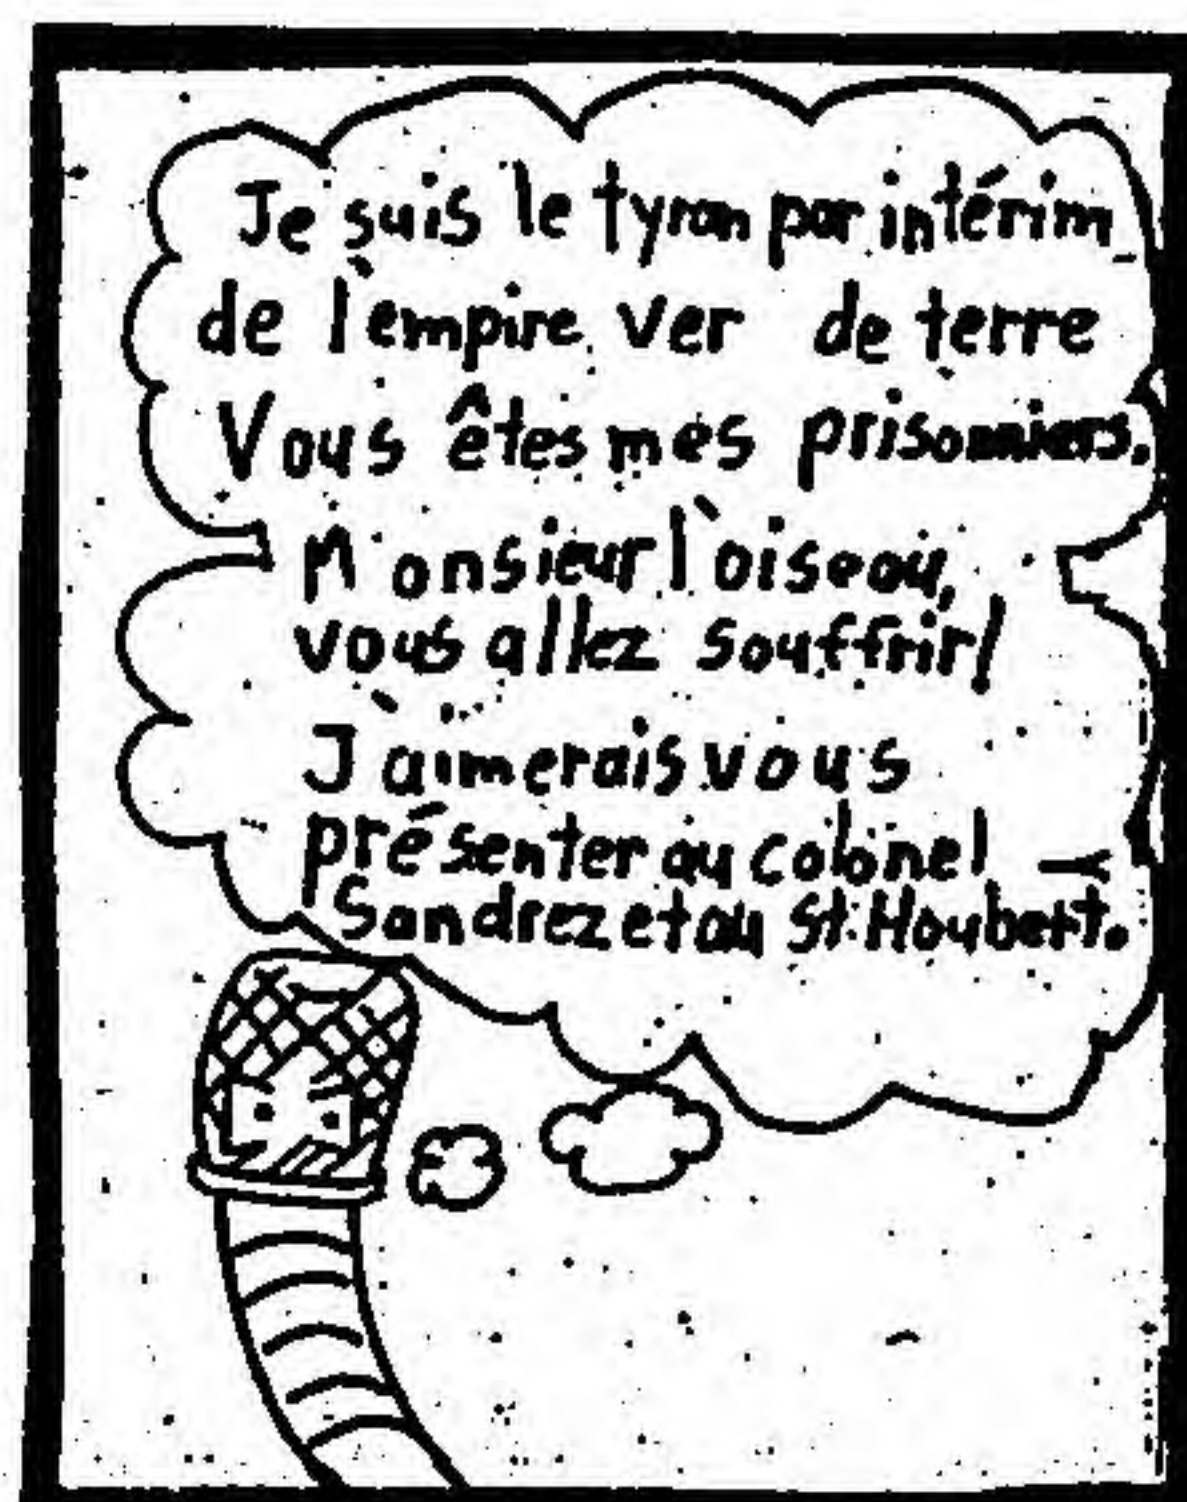 Je suis le tyran par intérim
de l'empire ver de terre
Vous êtes mes prisonniers.
Monsieur l'oiseau,
vous allez souffrir!
J'aimerais vous
présenter au colonel
Sandrez et au St-Houbert.